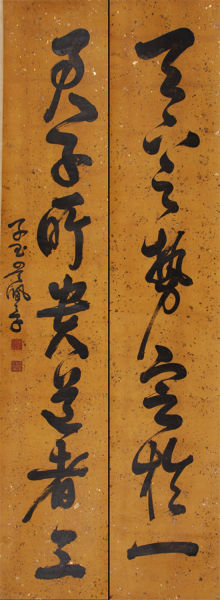 天下之勢定於一
君子所貴道者三